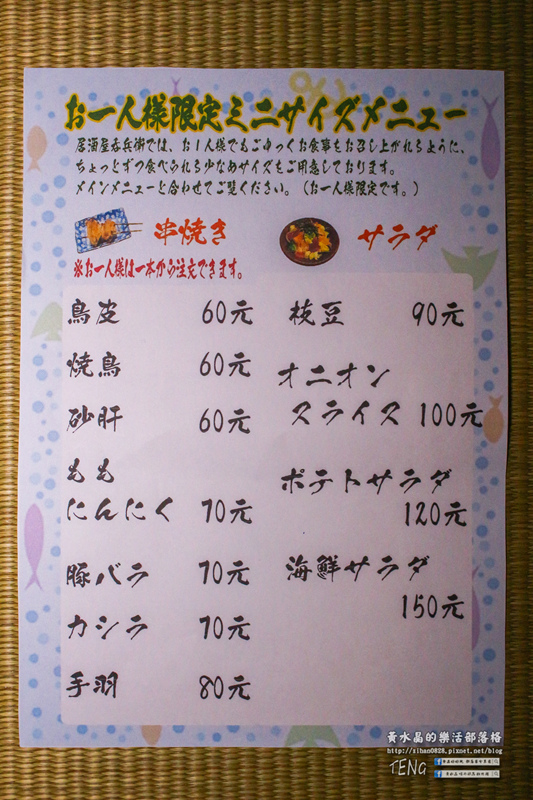 お一人様限定ミニサイズメニュー
居酒屋呑兵衛では、お1人様でもごゆっくお食事をお召し上がれるように、
ちょっとずつ食べられる少なめサイズもご用意しております。
メインメニューと合わせてご覧ください。(お一人様限定です。)
串焼き
※お一人様は一本から注文できます。
鳥皮 60元
焼鳥 60元
砂肝 60元
もも
にんにく 70元
豚バラ 70元
カシラ 70元
手羽 80元
サラダ
枝豆 90元
オニオン
スライス 100元
ポテトサラダ
120元
海鮮サラダ
150元
黃水晶的樂活部落格
http://sihan0828.pixnet.net/blog
TENG